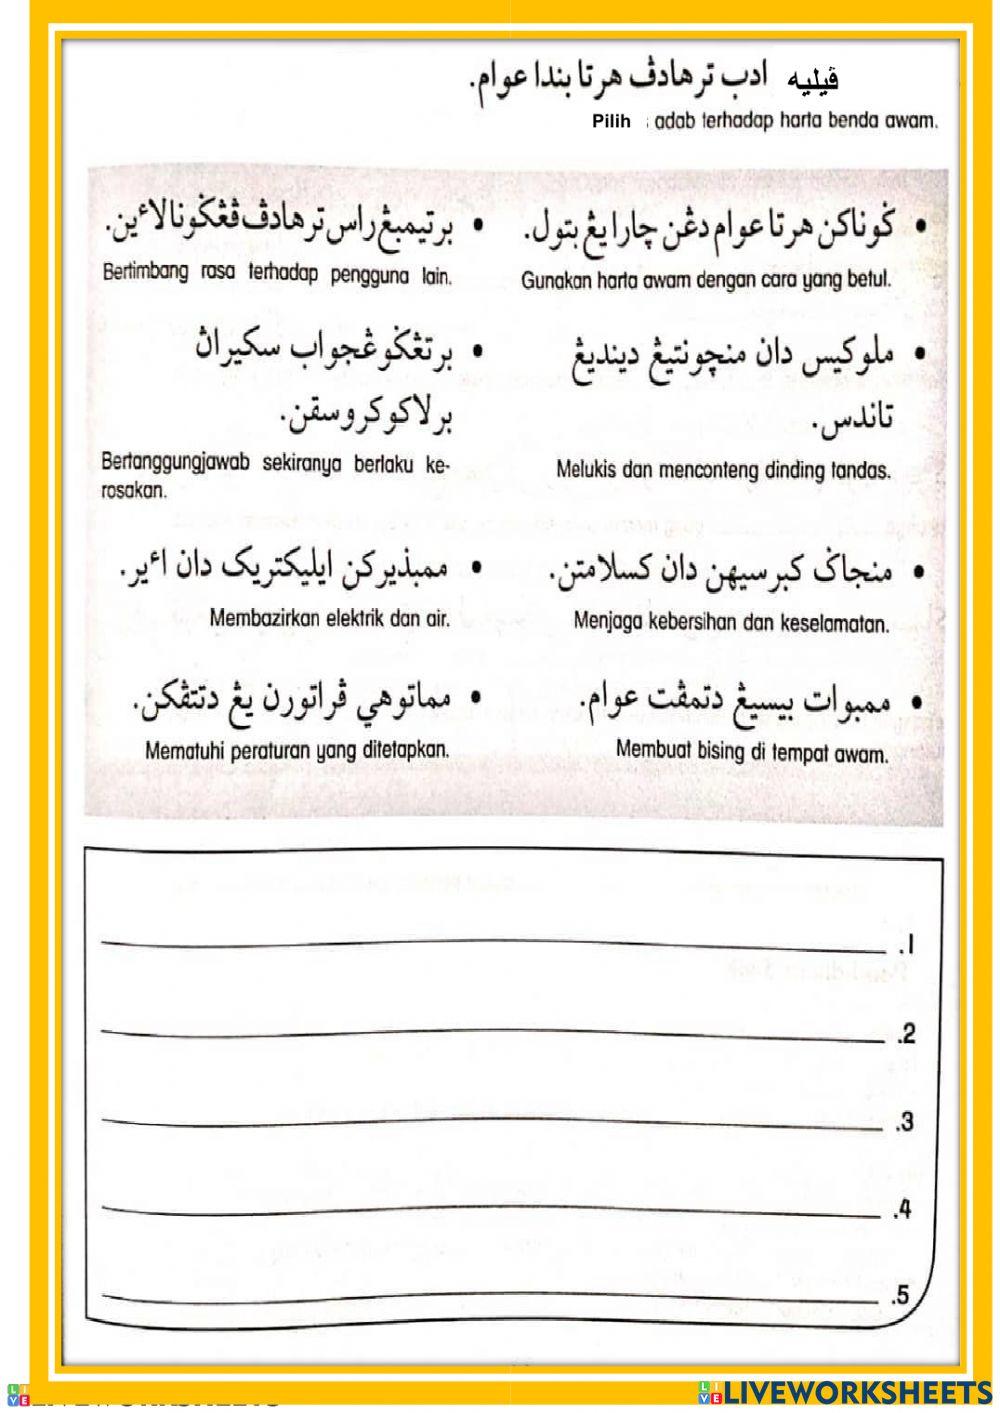 ڤيليه ادب ترهادڤ هرتا بندا عوام.
Pilih : adab terhadap harta benda awam.
• ݢوناکن هرتا عوام دڠن چارا يڠ بتول.
Gunakan harta awam dengan cara yang betul.
• برتيمبڠ راس ترهادڤ ڤڠݢونا لاءين.
Bertimbang rasa terhadap pengguna lain.
• ملوکيس دان منچونتيڠ دينديڠ
تاندس.
Melukis dan menconteng dinding tandas.
• برتڠݢوڠجواب سکيراڽ
برلاکو کروسقن.
Bertanggungjawab sekiranya berlaku ke-
rosakan.
• منجاݢ کبرسيهن دان کسلامتن.
Menjaga kebersihan dan keselamatan.
• ممبذيرکن ايليکتريک دان اءير.
Membazirkan elektrik dan air.
• ممبوات بيسيڠ دتمڤت عوام.
Membuat bising di tempat awam.
• مماتوهي ڤراتورن يڠ دتتڤکن.
Mematuhi peraturan yang ditetapkan.
.1
.2
.3
.4
.5
LIVEWORKSHEETS